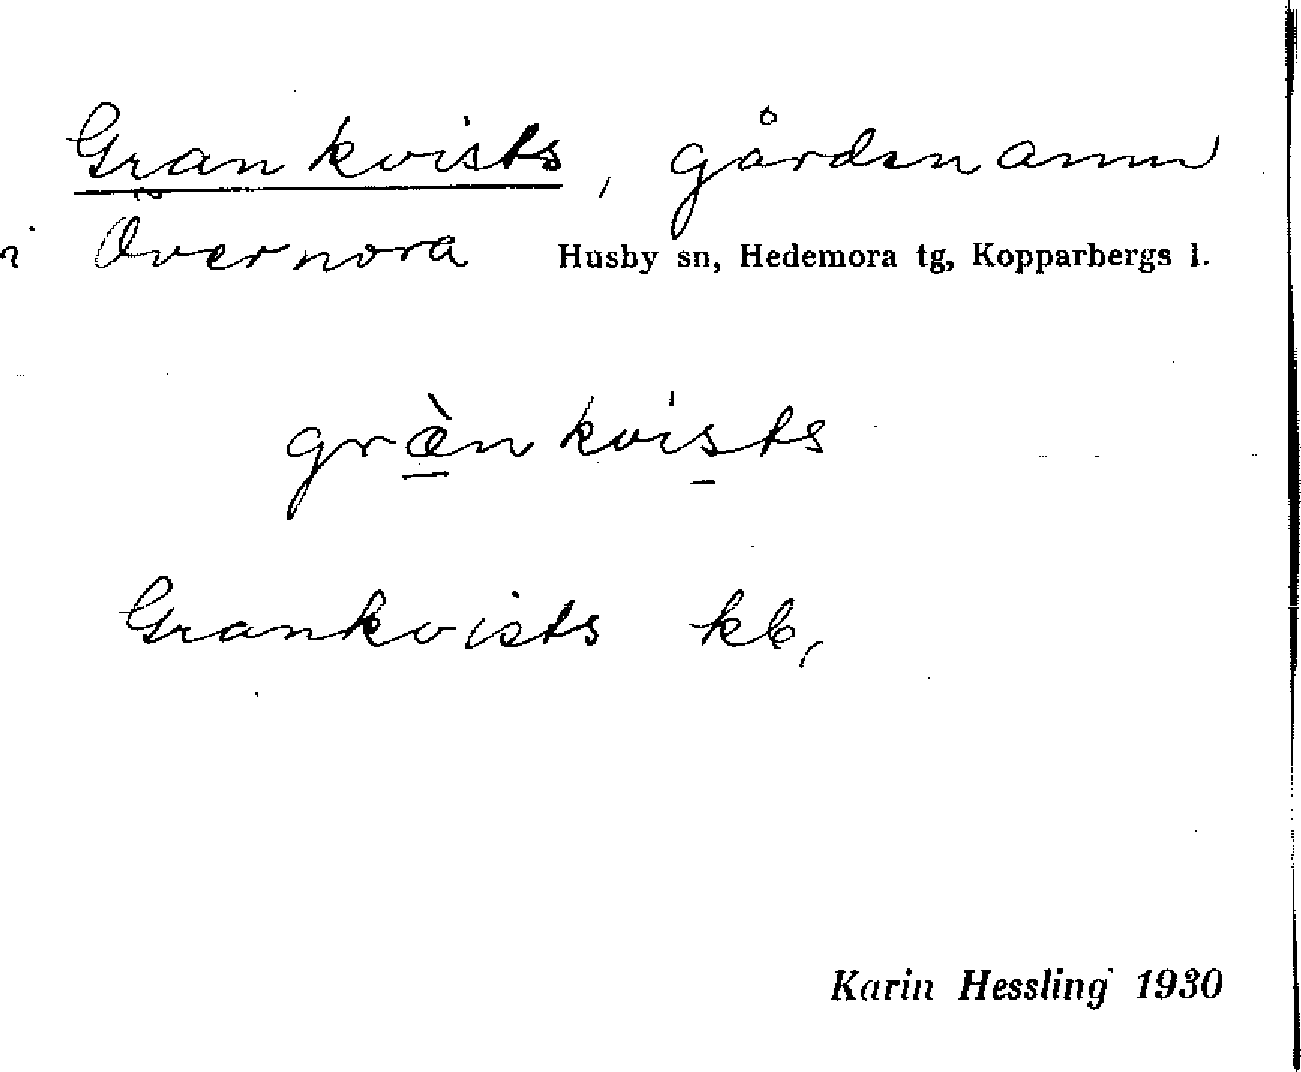 Grankvists, gårdsnamn
i Övernora Husby sn, Hedemora tg, Kopparbergs l.
græ̀nkvists
Grankvists kb,
Karin Hessling 1930